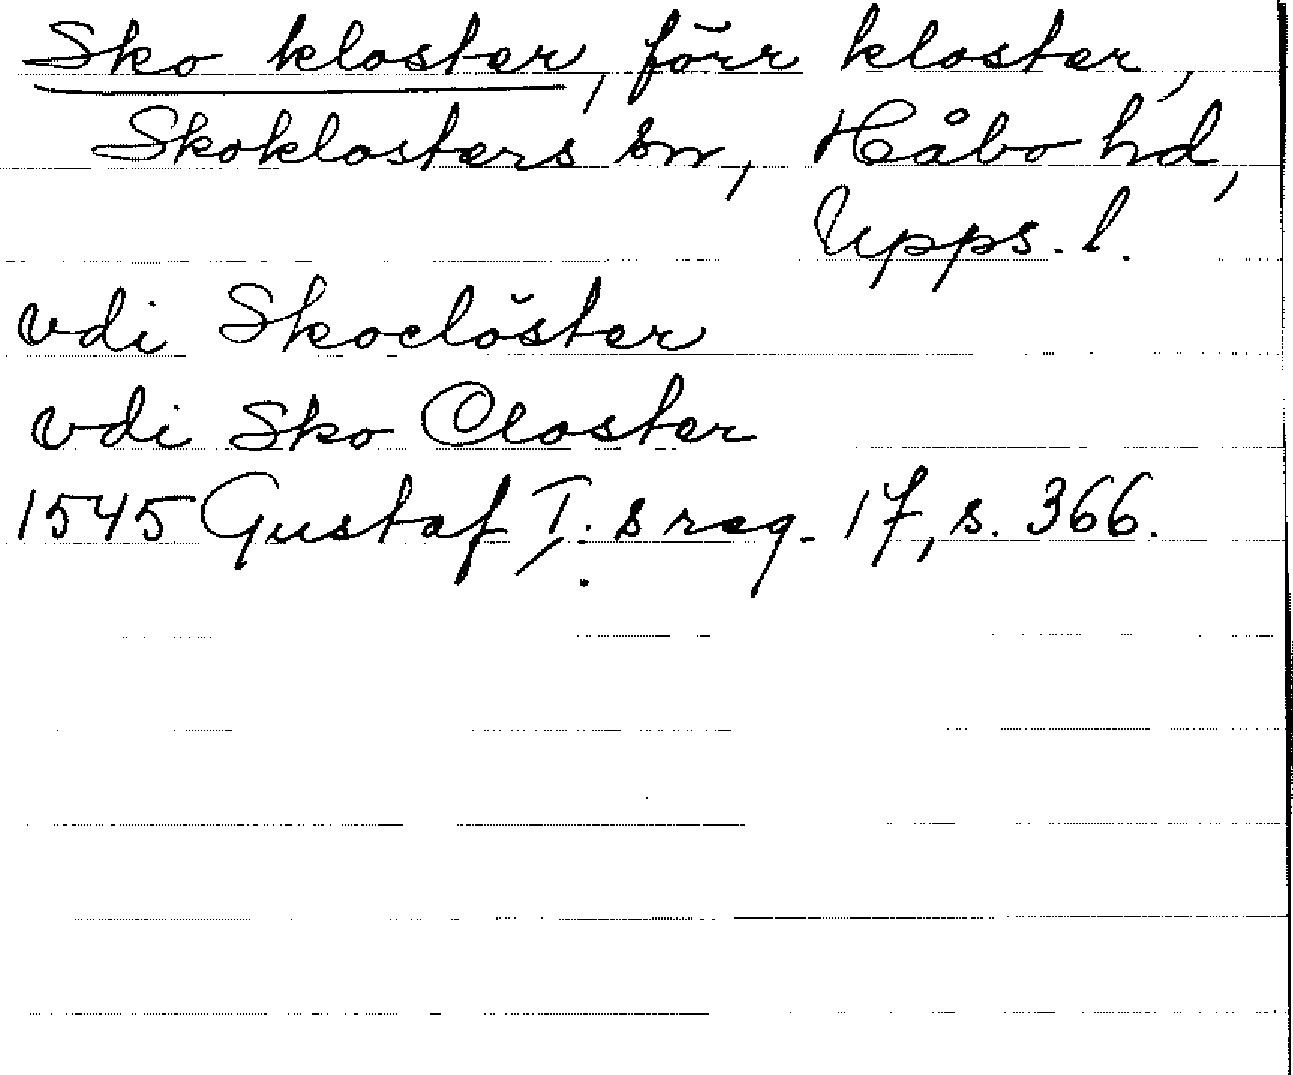 Sko kloster, förr kloster,
Skoklosters sn, Håbo hd,
Upps. l.
vdi Skoclöster
vdi Sko Closter
1545 Gustaf I:s reg. 17, s. 366.